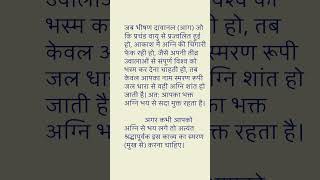 जब भीषण दावानल (आग) जो
कि प्रचंड वायु से प्रज्वलित हुई
हो, आकाश में अग्नि की चिंगारी
फेंक रही हो, जैसे अपनी तीव्र
ज्वालाओं से संपूर्ण विश्व को
भस्म कर देना चाहती हो, तब
केवल आपका नाम स्मरण रूपी
जल धारा से वही अग्नि शांत हो
जाती है। अतः आपका भक्त
अग्नि भय से सदा मुक्त रहता है।
अगर कभी आपको
अग्नि से भय लगे तो अत्यंत
श्रद्धापूर्वक इस काव्य का स्मरण
(मुख से) करना चाहिए।